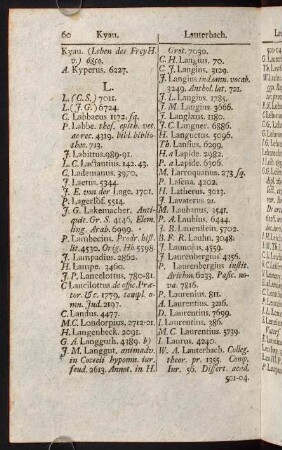 60 Kyau. Lauterbach.
Kyau. (Leben des FreyH.
v.) 6850.
A. Kyperus. 6227.
L.
L. (C. S.) 7011.
L. (J. G.) 6724.
C. Labbaeus 1172. sq.
P. Labbe. thes. epith. vet.
ac rec. 4319. bibl. biblio-
thec. 713.
J. Labittus. 989-91.
L. C. Lactantius. 142. 43.
C. Lademanus. 3970.
J. Laetus. 5344.
J. E. von der Lage. 1701.
P. Lagerlöf. 5514.
J. G. Lakemacher. Anti-
quit. Gr. S. 4146. Elem.
ling. Arab. 6999.
P. Lambecius. Prodr. hist.
lit. 4530. Orig. Hb. 5398
J. Lampadius. 2862.
H. Lampe. 3460.
J. P. Lancelottus. 780-81.
C. Lancilottus. de offic. Præ-
tor. &c. 1779. templ. o-
mn. Jud. 2197.
C. Landus. 4477.
M. C. Londorpius. 2712-21.
H. Langenbeck. 2091.
G. A. Langguth. 4389. b)
J. M. Langgut. animadv.
in Cocceii hypomn. iur.
feud. 2613. Annot. in H.
Grot. 7030.
C. H. Langius. 70.
C. J. Langius. 3129.
J. Langius. in Lemn. vocab.
3249. Anthol. lat. 721.
J. L. Langius. 1785.
J. M. Langius. 3666.
J. Langlæus. 1180.
J. C. Langner. 6886.
H. Languetus. 5006.
Th. Lansius. 6299.
H. a Lapide. 2982.
P. a Lapide. 6306.
M. Larroquanus. 273 sq.
P. Laſena. 4202.
H. Latherus. 3013.
J. Lavaterus. 21.
M. Laubanus. 3541.
P. A. Lauhius. 6444.
J. B. Lauenstein. 5702.
B. F. R. Lauhn. 3048.
J. Laurentius. 4559.
J. Laurembergius. 4356.
P. Laurenbergius instit.
Arithm. 6233. Pasic. nova. 7816.
P. Laurenius. 811.
A. Laurentius. 3216.
D. Laurentius. 7699.
J. Laurentius. 386.
M. C. Laurentius. 5739.
I. Laurus. 4240.
W. A. Lauterbach. Colleg.
theor. pr. 1355. Comp.
Iur. 56. Dissert. acad.
501-04.